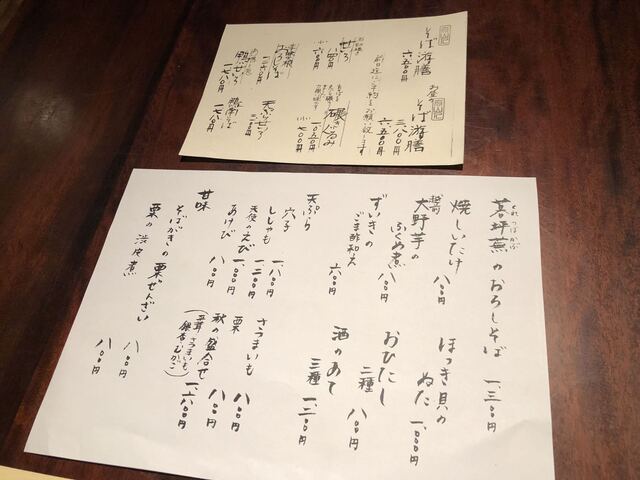 そば游膳
六五〇〇円
お昼の
そば游膳
三八〇〇円
六五〇〇円
前日迄にご予約をお願い致します
せいろ
八四〇円
小 六〇〇円
一〇五〇円
小 七〇〇円
おろしそば
一二六〇円
天ぷらせいろ
鴨せいろ
一六八〇円
一七八〇円
暮坪蕪のおろしそば 一、三〇〇円
くれつぼかぶ
焼しいたけ 八〇〇円
ほっき貝の
ぬた 一、〇〇〇円
越前
大野芋の
ふくめ煮 八〇〇円
おひたし
二種 八〇〇円
ずいきの
ごま酢和え 六〇〇円
酒のあて
三種 一、二〇〇円
天ぷら
穴子 一、八〇〇円
ししゃも 一、二〇〇円
天使のえび 一、〇〇〇円
あけび 八〇〇円
さつまいも 八〇〇円
栗 八〇〇円
秋の盛合せ 一、六〇〇円
さつまいも
銀杏 むかご
甘味
そばがきの栗ぜんざい 八〇〇円
栗の渋皮煮 八〇〇円